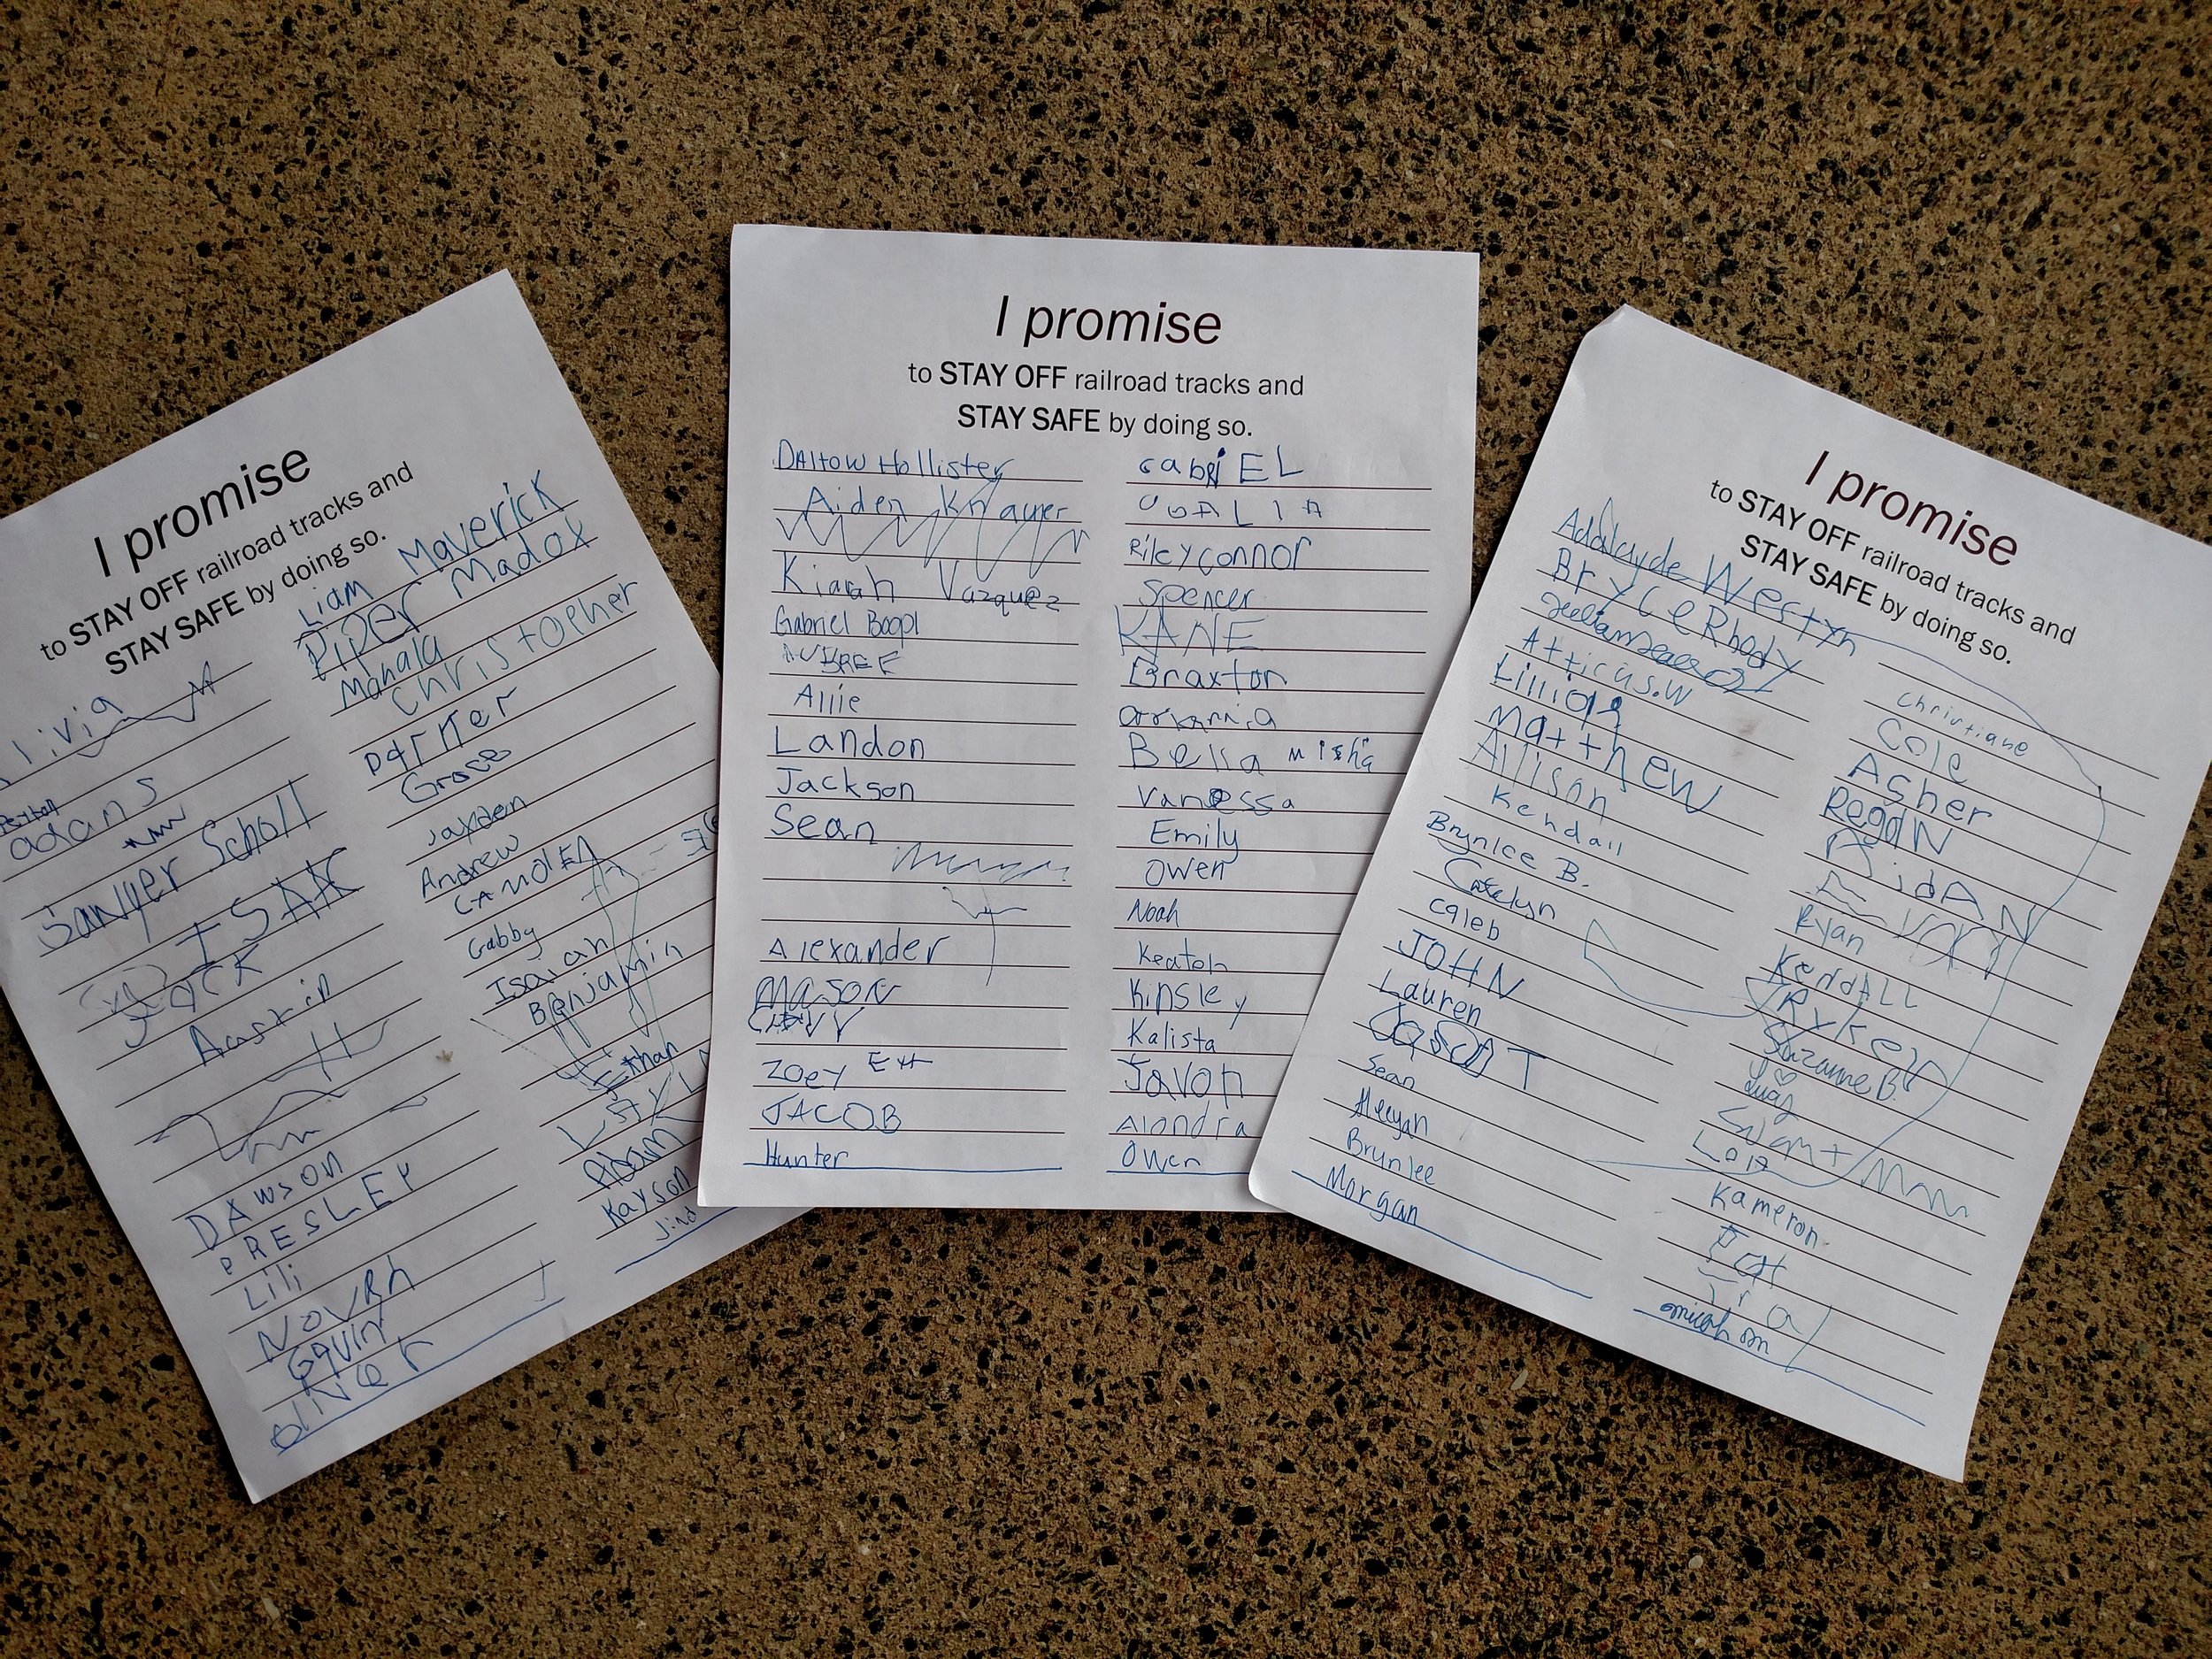 I promise
to STAY OFF railroad tracks and
STAY SAFE by doing so.
livia M
adams
Sawyer Scholl
ISAAC
JACK
Austin
DAWSON
PRESLEY
Lili
NOVAh
Gavin
oliver
Liam Maverick
Piper Madox
Mahala
Christopher
parker
Grace
Jaxden
Andrew
CAMDEN
Gabby
Isaiah
Benjamin
Ethan
Adam
Kayson
I promise
to STAY OFF railroad tracks and
STAY SAFE by doing so.
DAltow Hollister
Aiden Knauer
Kiarah Vazquez
Gabriel Boopl
AUBREE
Allie
Landon
Jackson
Sean
Alexander
MASON
Zoey
JACOB
Hunter
GabriEL
Riley connor
Spencer
KANE
Braxton
Bella
Vanessa
Emily
Owen
Noah
Keaton
Kinsley
Kalista
Javon
Alondra
Owen
I promise
to STAY OFF railroad tracks and
STAY SAFE by doing so.
Adalayde Westyn
BrYCe Rhody
Atticus.W
Lillian
Matthew
Allison
Kendall
Brynlee B.
Catelyn
Caleb
JOHN
Lauren
Sean
Meegan
Brynlee
Morgan
Christiane
Cole
Asher
RegaN
AidAN
Ryan
KendALL
Ryker
Suzanne B.
Kameron
Pat
micah